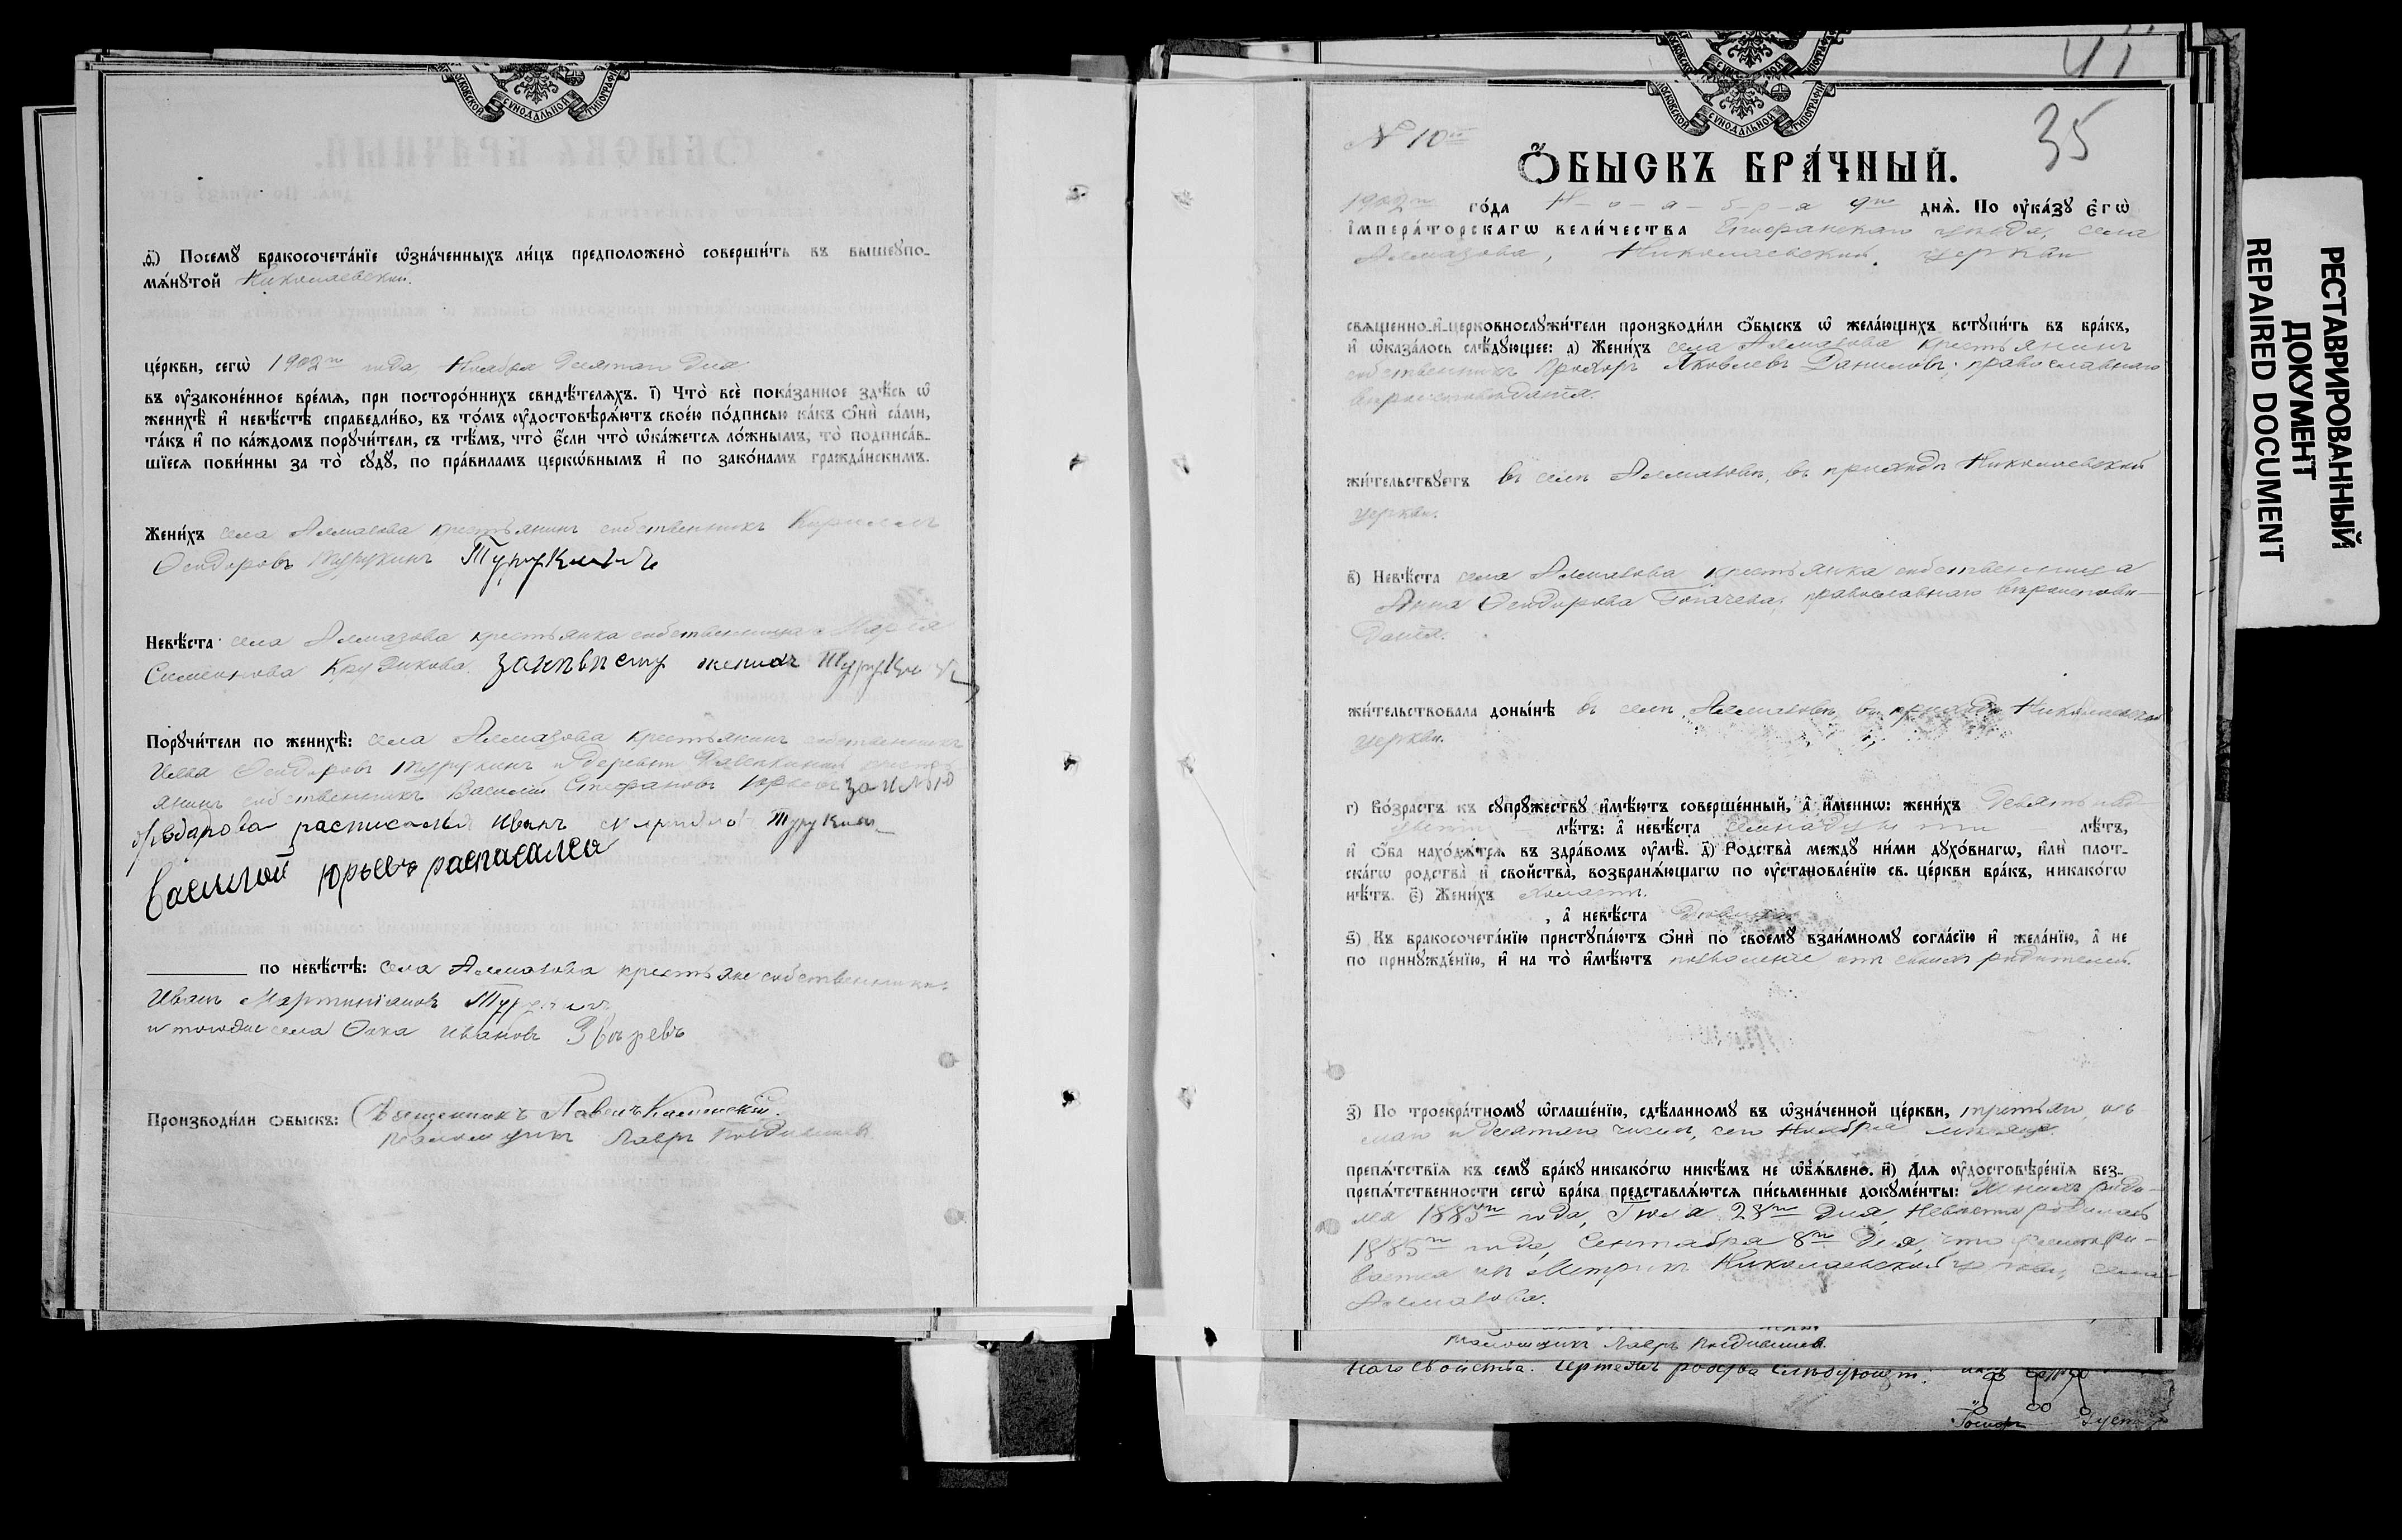 МОСКОВСКОЙ СѴНОДАЛЬНОЙ ТИПОГРАФІИ
д҃і) Посемꙋ̀ бракосочета́нїе ѡ҆зна́ченныхъ ли́цъ предположено̀ соверши́ть въ вышеꙋпо-
мѧ́нꙋтой Николаевской
це́ркви, сегѡ̀ 1902го года Ноября Десятаго Дня
въ ᲂу҆зако́ненное вре́мѧ, при посторо́ннихъ свидѣ́телѧхъ. і҃) Что̀ всѐ пока́занное здѣ́сь ѡ҆
женихѣ̀ и҆ невѣ́стѣ справедли́во, въ то́мъ ᲂу҆достовѣрѧ́ютъ свое́ю по́дписью ка́къ ѻ҆нѝ са́ми,
та́къ и҆ по ка́ждомъ порꙋчи́тели, съ тѣ́мъ, что̀ є҆́сли что̀ ѡ҆ка́жетсѧ ло́жнымъ, то̀ подписа́в-
шїесѧ пови́нны за то̀ сꙋдꙋ̀, по пра́виламъ церкѡ́внымъ и҆ по зако́намъ гражда́нскимъ.
Жени́хъ села Алмазова крестьянинъ собственникъ Кириллъ
Ѳеодоровъ Турукинъ Турукинъ
Невѣ́ста села Алмазова крестьянка собственница Марѳа
Симеонова Крудикова. женихъ Турукинъ
Порꙋчи́тели по женихѣ̀: села Алмазова крестьянинъ собственникъ
Илья Ѳеодоровъ Турукинъ и деревни кресть-
янинъ собственникъ Василій Стефановъ Юрьевъ за Илью
Федарова расписался Иванъ Турукинъ
Василий Юрьевъ распасался
по невѣ́стѣ: села Алмазова крестьяне собственники:
Иванъ Мартиніановъ
и тогоже села Ѳока Ивановъ Звѣревъ
Производи́ли ѻбыскъ: Священникъ Павелъ Каменскій.
Псаломщикъ Лавръ
41
МОСКОВСКОЙ СѴНОДАЛЬНОЙ ТИПОГРАФІИ
35
№ 10й
Ѻ҆́БЫСКЪ БРА́ЧНЫЙ.
1902го го́да Н-о-я-б-р-я 9го днѧ̀. По ᲂу҆ка́зꙋ є҆гѡ̀
і҆мпера́торскагѡ вели́чества Епифанскаго уѣзда, села
Алмазова, Николаевской церкви
свѧщенно-и҆-церковнослꙋжи́тели производи́ли ѻ҆́быскъ ѡ҆ жела́ющихъ встꙋпи́ть въ бра́къ,
и҆ ѡ҆каза́лось слѣ́дꙋющее: а҃) Жени́хъ села Алмазова крестьянинъ
собственникъ Прохоръ Яковлевъ Даниловъ; православнаго
вѣроисповѣданія.
жи́тельствꙋетъ въ селѣ Алмазовѣ, въ приходѣ Николаевской
церкви.
в҃) Невѣ́ста села Алмазова крестьянка собственница
Анна Ѳеодорова православнаго вѣроисповѣ-
данія.
жи́тельствовала доны́нѣ въ селѣ Алмазовѣ, въ приходѣ Николаевской
церкви.
г҃) Во́зрастъ къ сꙋпрꙋ́жествꙋ и҆мѣ́ютъ соверше́нный, а҆ и҆́меннѡ: жени́хъ девятнад-
цати лѣ́тъ: а҆ невѣ́ста семнадцати лѣ́тъ,
и҆ ѻ҆́ба нахо́дѧтсѧ въ здра́вомъ ᲂу҆мѣ̀. д҃) Родства̀ междꙋ̀ ни́ми дꙋхо́внагѡ, и҆лѝ плот-
ска́гѡ родства̀ и҆ сво́йства, возбранѧ́ющагѡ по ᲂу҆становле́нїю св. це́ркви бра́къ, никако́гѡ
нѣ́тъ. є҃) Жени́хъ холостъ.
, а҆ невѣ́ста девица.
ѕ҃) Къ бракосочета́нїю пристꙋпа́ютъ ѻ҆нѝ по своемꙋ̀ взаи́мномꙋ согла́сїю и҆ жела́нїю, а҆ не
по принꙋжде́нїю, и҆ на то̀ и҆мѣ́ютъ позволеніе отъ своихъ родителей.
з҃) По троекра́тномꙋ ѡ҆глаше́нїю, сдѣ́ланномꙋ въ ѡ҆зна́ченной це́ркви, третьяго, ось-
маго и девятаго чиселъ, сего Ноября мѣсяца.
препѧ́тствїѧ къ семꙋ̀ бра́кꙋ никако́гѡ никѣ́мъ не ѡ҆б̾ѧ́влено. и҃) Длѧ ᲂу҆достовѣре́нїѧ без-
препѧ́тственности сегѡ̀ бра́ка представлѧ́ютсѧ пи́сьменные докꙋме́нты: Женихъ роди-
лся 1883го года, Іюля 28го дня, Невѣста родилась
1885го года, Сентября 8го дня, что усматри-
вается изъ Метрикъ Николаевской церкви, села
Алмазова.
Псаломщикъ Лавръ
наго свойства. Чертежъ родства слѣдующій:
РЕСТАВРИРОВАННЫЙ
ДОКУМЕНТ
REPAIRED DOCUMENT